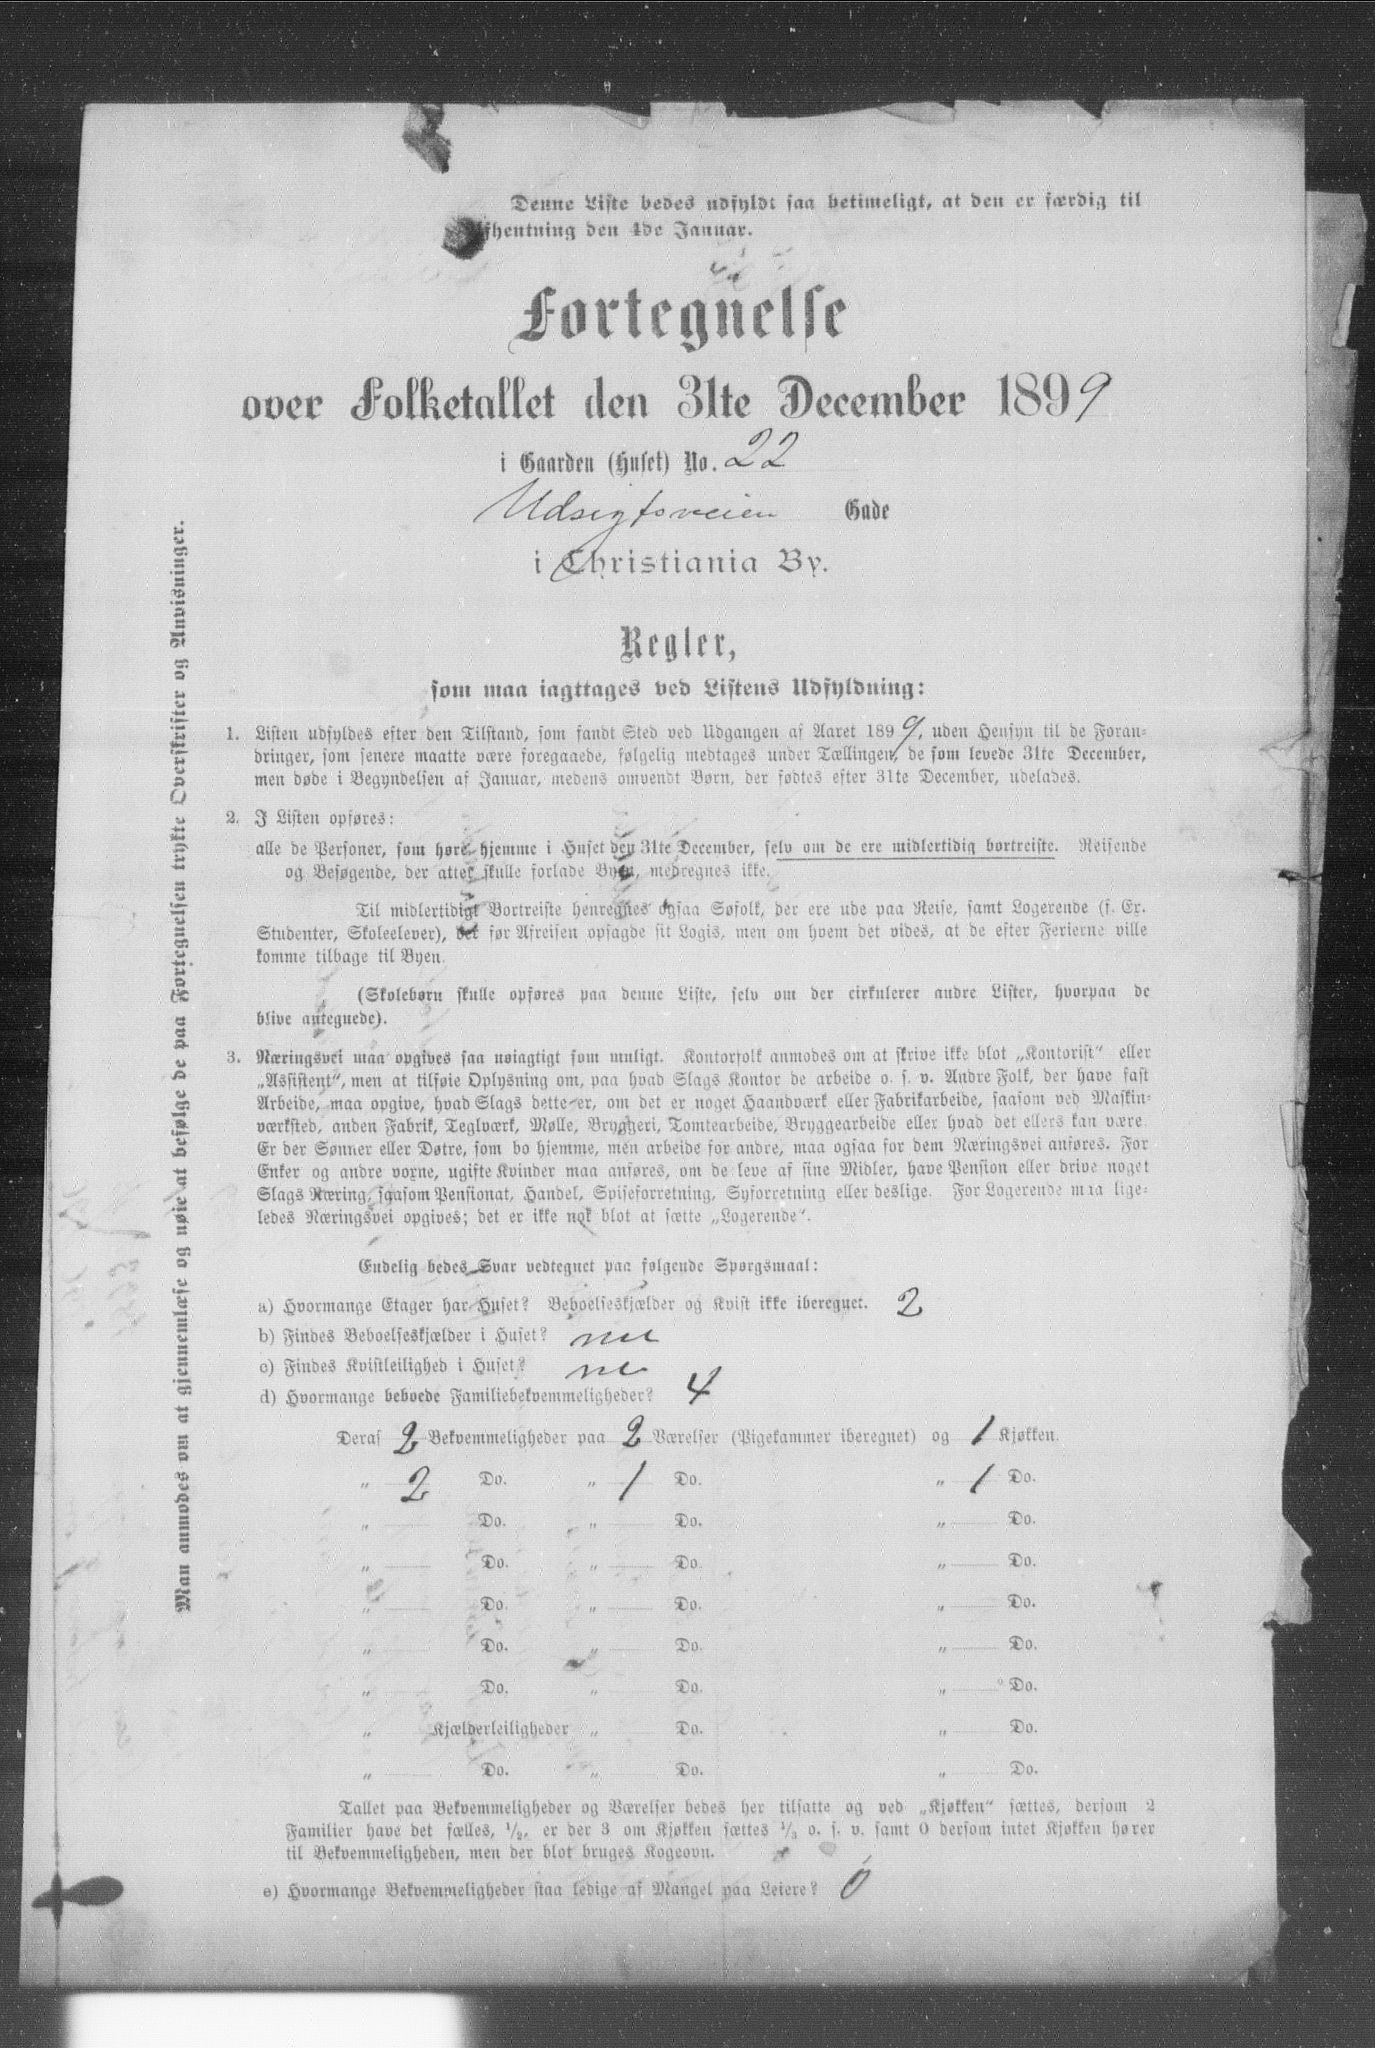 Denne Liste bedes udfyldt saa betimeligt, at den er færdig til
Afhentning den 4de Januar.
Fortegnelse
over Folketallet den 31te December 1899
i Gaarden (Huset) No. 22
Udsigtsveien Gade
i Christiania By.
Regler,
som maa iagttages ved Listens Udfyldning:
1. Listen udfyldes efter den Tilstand, som fandt Sted ved Udgangen af Aaret 1899, uden Hensyn til de Foran-
dringer, som senere maatte være foregaaede, følgelig medtages under Tællingen, de som levede 31te December,
men døde i Begyndelsen af Januar, medens omvendt Børn, der fødtes efter 31te December, udelades.
2. I Listen opføres:
alle de Personer, som høre hjemme i Huset den 31te December, selv om de ere midlertidig bortreiste. Reisende
og Besøgende, der atter skulle forlade Byen, medregnes ikke.
Til midlertidigt Bortreiste henregnes ogsaa Søfolk, der ere ude paa Reise, samt Logerende (f. Ex.
Studenter, Skoleelever), der før Afreisen opsagde sit Logis, men om hvem det vides, at de efter Ferierne ville
komme tilbage til Byen.
(Skolebørn skulle opføres paa denne Liste, selv om der cirkulerer andre Lister, hvorpaa de
blive antegnede).
3. Næringsvei maa opgives saa nøiagtigt som muligt. Kontorfolk anmodes om at skrive ikke blot „Kontorist“ eller
„Assistent“, men at tilføie Oplysning om, paa hvad Slags Kontor de arbeide o. s. v. Andre Folk, der have fast
Arbeide, maa opgive, hvad Slags dette er, om det er noget Haandværk eller Fabrikarbeide, saasom ved Maskin-
værksted, anden Fabrik, Teglværk, Mølle, Bryggeri, Tomtearbeide, Bryggearbeide eller hvad det ellers kan være.
Er der Sønner eller Døtre, som bo hjemme, men arbeide for andre, maa ogsaa for dem Næringsvei anføres. For
Enker og andre voxne, ugifte Kvinder maa anføres, om de leve af sine Midler, have Pension eller drive noget
Slags Næring, saasom Pensionat, Handel, Spiseforretning, Syforretning eller deslige. For Logerende maa lige-
ledes Næringsvei opgives; det er ikke nok blot at sætte „Logerende“.
Endelig bedes Svar vedtegnet paa følgende Spørgsmaal:
a) Hvormange Etager har Huset? Beboelseskjælder og Kvist ikke iberegnet. 2
b) Findes Beboelseskjælder i Huset?
c) Findes Kvistleilighed i Huset?
d) Hvormange beboede Familiebekvemmeligheder? 4
Deraf 2 Bekvemmeligheder paa 2 Værelser (Pigekammer iberegnet) og 1 Kjøkken.
„ 2 Do. „ 1 Do. „ 1 Do.
„ Do. „ Do. „ Do.
„ Do. „ Do. „ Do.
„ Do. „ Do. „ Do.
„ Do. „ Do. „ Do.
„ Do. „ Do. „ Do.
„ Kjælderleiligheder „ Do. „ Do.
„ Do. „ Do. „ Do.
Tallet paa Bekvemmeligheder og Værelser bedes her tilsatte og ved „Kjøkken“ sættes, dersom 2
Familier have det fælles, 1/2, er der 3 om Kjøkken sættes 1/3 o. s. v. samt 0 dersom intet Kjøkken hører
til Bekvemmeligheden, men der blot bruges Kogeovn.
e) Hvormange Bekvemmeligheder staa ledige af Mangel paa Leiere? 0
Man anmodes om at gjennemlæse og nøie at befølge de paa Fortegnelsen trykte Overskrifter og Anvisninger.